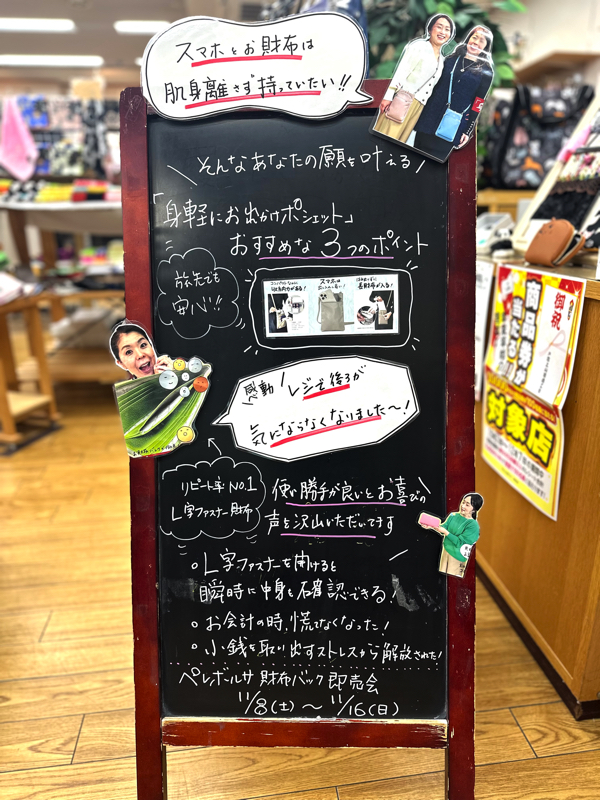 スマホとお財布は
肌身離さず持っていたい!!
そんなあなたの願を叶える
「身軽にお出かけポシェット」
おすすめな3つのポイント
旅先でも
安心!!
スマホは
長財布が入る!
感動!レジで後ろが
気にならなくなりました〜!
リピート率No.1
L字ファスナー財布
使い勝手が良いとお喜びの
声を沢山いただいてます
○L字ファスナーを開けると
瞬時に中身を確認できる!
○お会計の時、慌てなくなった!
○小銭を取り出すストレスから解放された!
ペレボルサ財布バック即売会
11/8(土)〜11/16(日)
御祝
商品券が
当たる
対象店